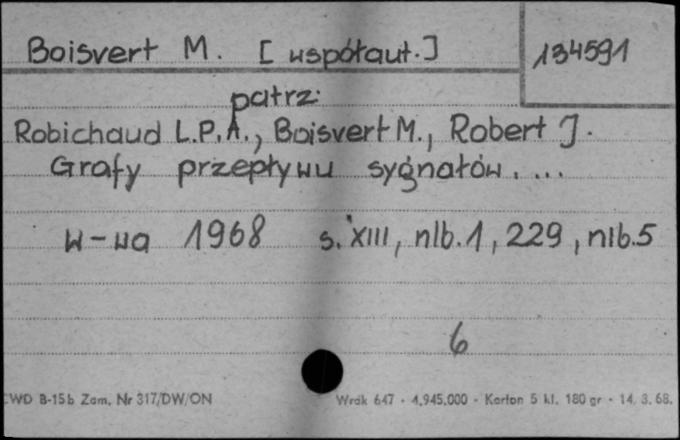 Boisvert M. [współaut.] 134591
patrz:
Robichaud L.P.A., Boisvert M., Robert J.
Grafy przepływu sygnałów. ...
W-wa 1968 s. XIII, nlb. 1, 229, nlb. 5
6
CWD B-15b Zam. Nr 317/DW/ON Wrdk 647 - 4.945.000 - Karton 5 kl. 180 gr - 14. 3. 68.